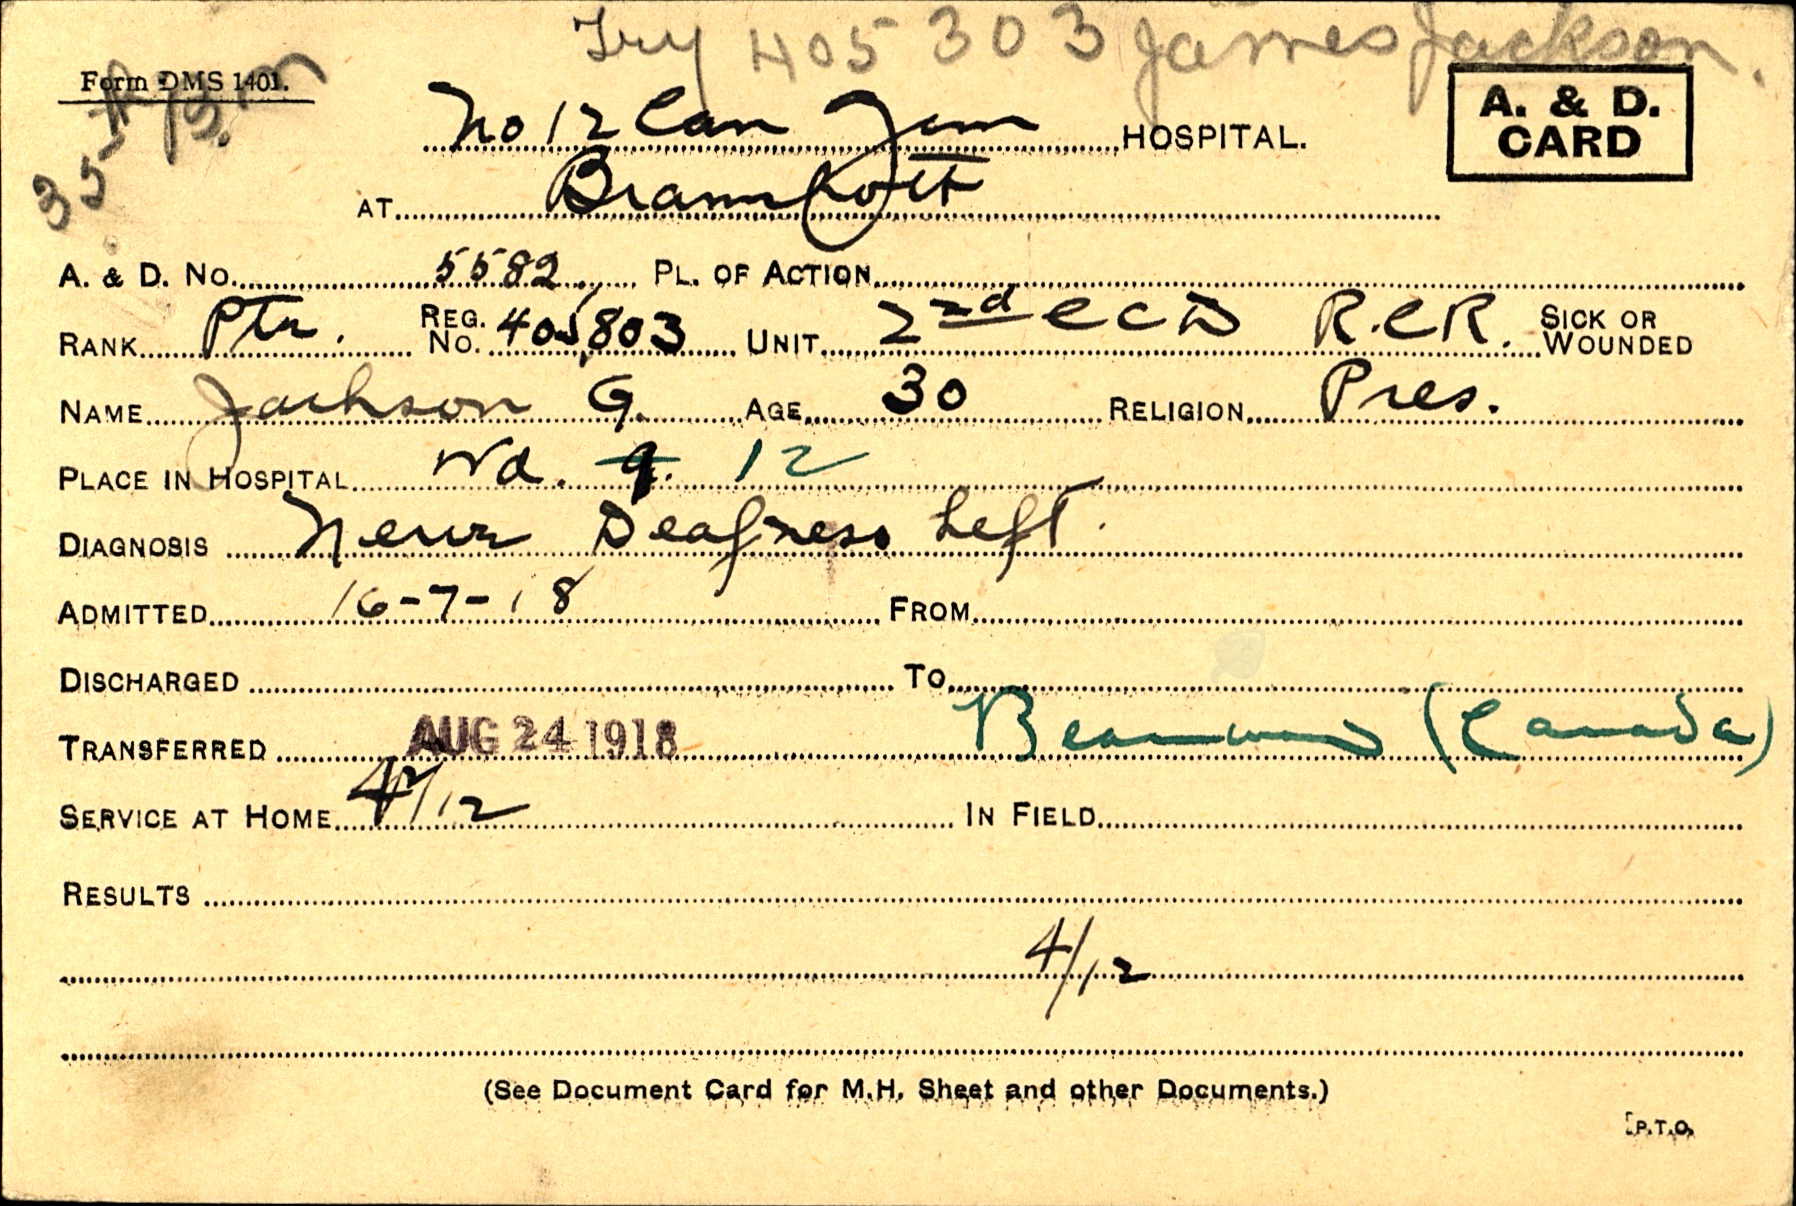 Try 405303 James Jackson.
Form DMS 1401.
35th Bn
A. & D.
CARD
No 12 Can Gen HOSPITAL.
AT Bramshott
A. & D. No. 5582 PL. OF ACTION
RANK Pte. REG. No. 405,803 UNIT 2nd CCD R.C.R. SICK OR WOUNDED
NAME Jackson G. AGE 30 RELIGION Pres.
PLACE IN HOSPITAL Wd. 9. 12
DIAGNOSIS Nerve Deafness Left.
ADMITTED 16-7-18 FROM
DISCHARGED TO
TRANSFERRED AUG 24 1918 (Canada)
SERVICE AT HOME /12 IN FIELD
RESULTS
4/12
(See Document Card for M.H. Sheet and other Documents.)
[P.T.O.